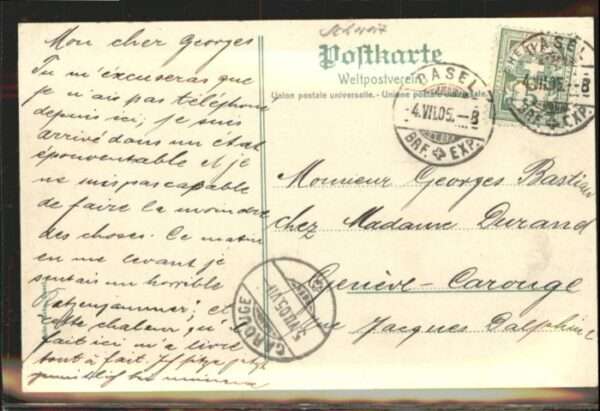 Mon cher Georges
Tu m'excuseras que
je n'ais pas téléphoné
depuis ici; je suis
arrivé dans un état
épouventable et je
ne suis pas capable
de faire la moindre
des choses. Ce matin
en me levant je
sentais un horrible
Katzenjammer; et
cette chaleur qu'il
fait ici m'a livré
tout à fait.
Schweiz
Postkarte
Weltpostverein
Union postale universelle. - Unione postale universale.
BASEL
-4.VII.05.-8
BRF. EXP.
BASEL
-4.VII.05.-8
BRF. EXP.
Monsieur Georges Bastian
chez Madame Durand
Genève-Carouge
Rue Jacques Dalphin
CAROUGE
5.VII.05.VII